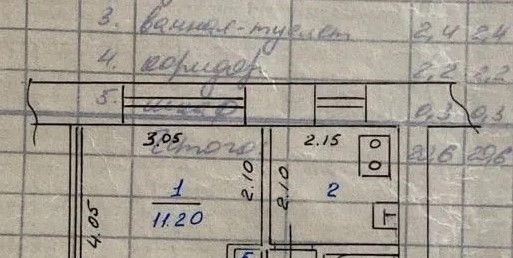 3. ванная-туалет 2,4 2,4
4. коридор 2,2 2,2
5. шкаф 0,3 0,3
Итого 29,6 29,6
3.05 2.15
2.10 2.10
1 2
11.20
4.05
Т
5